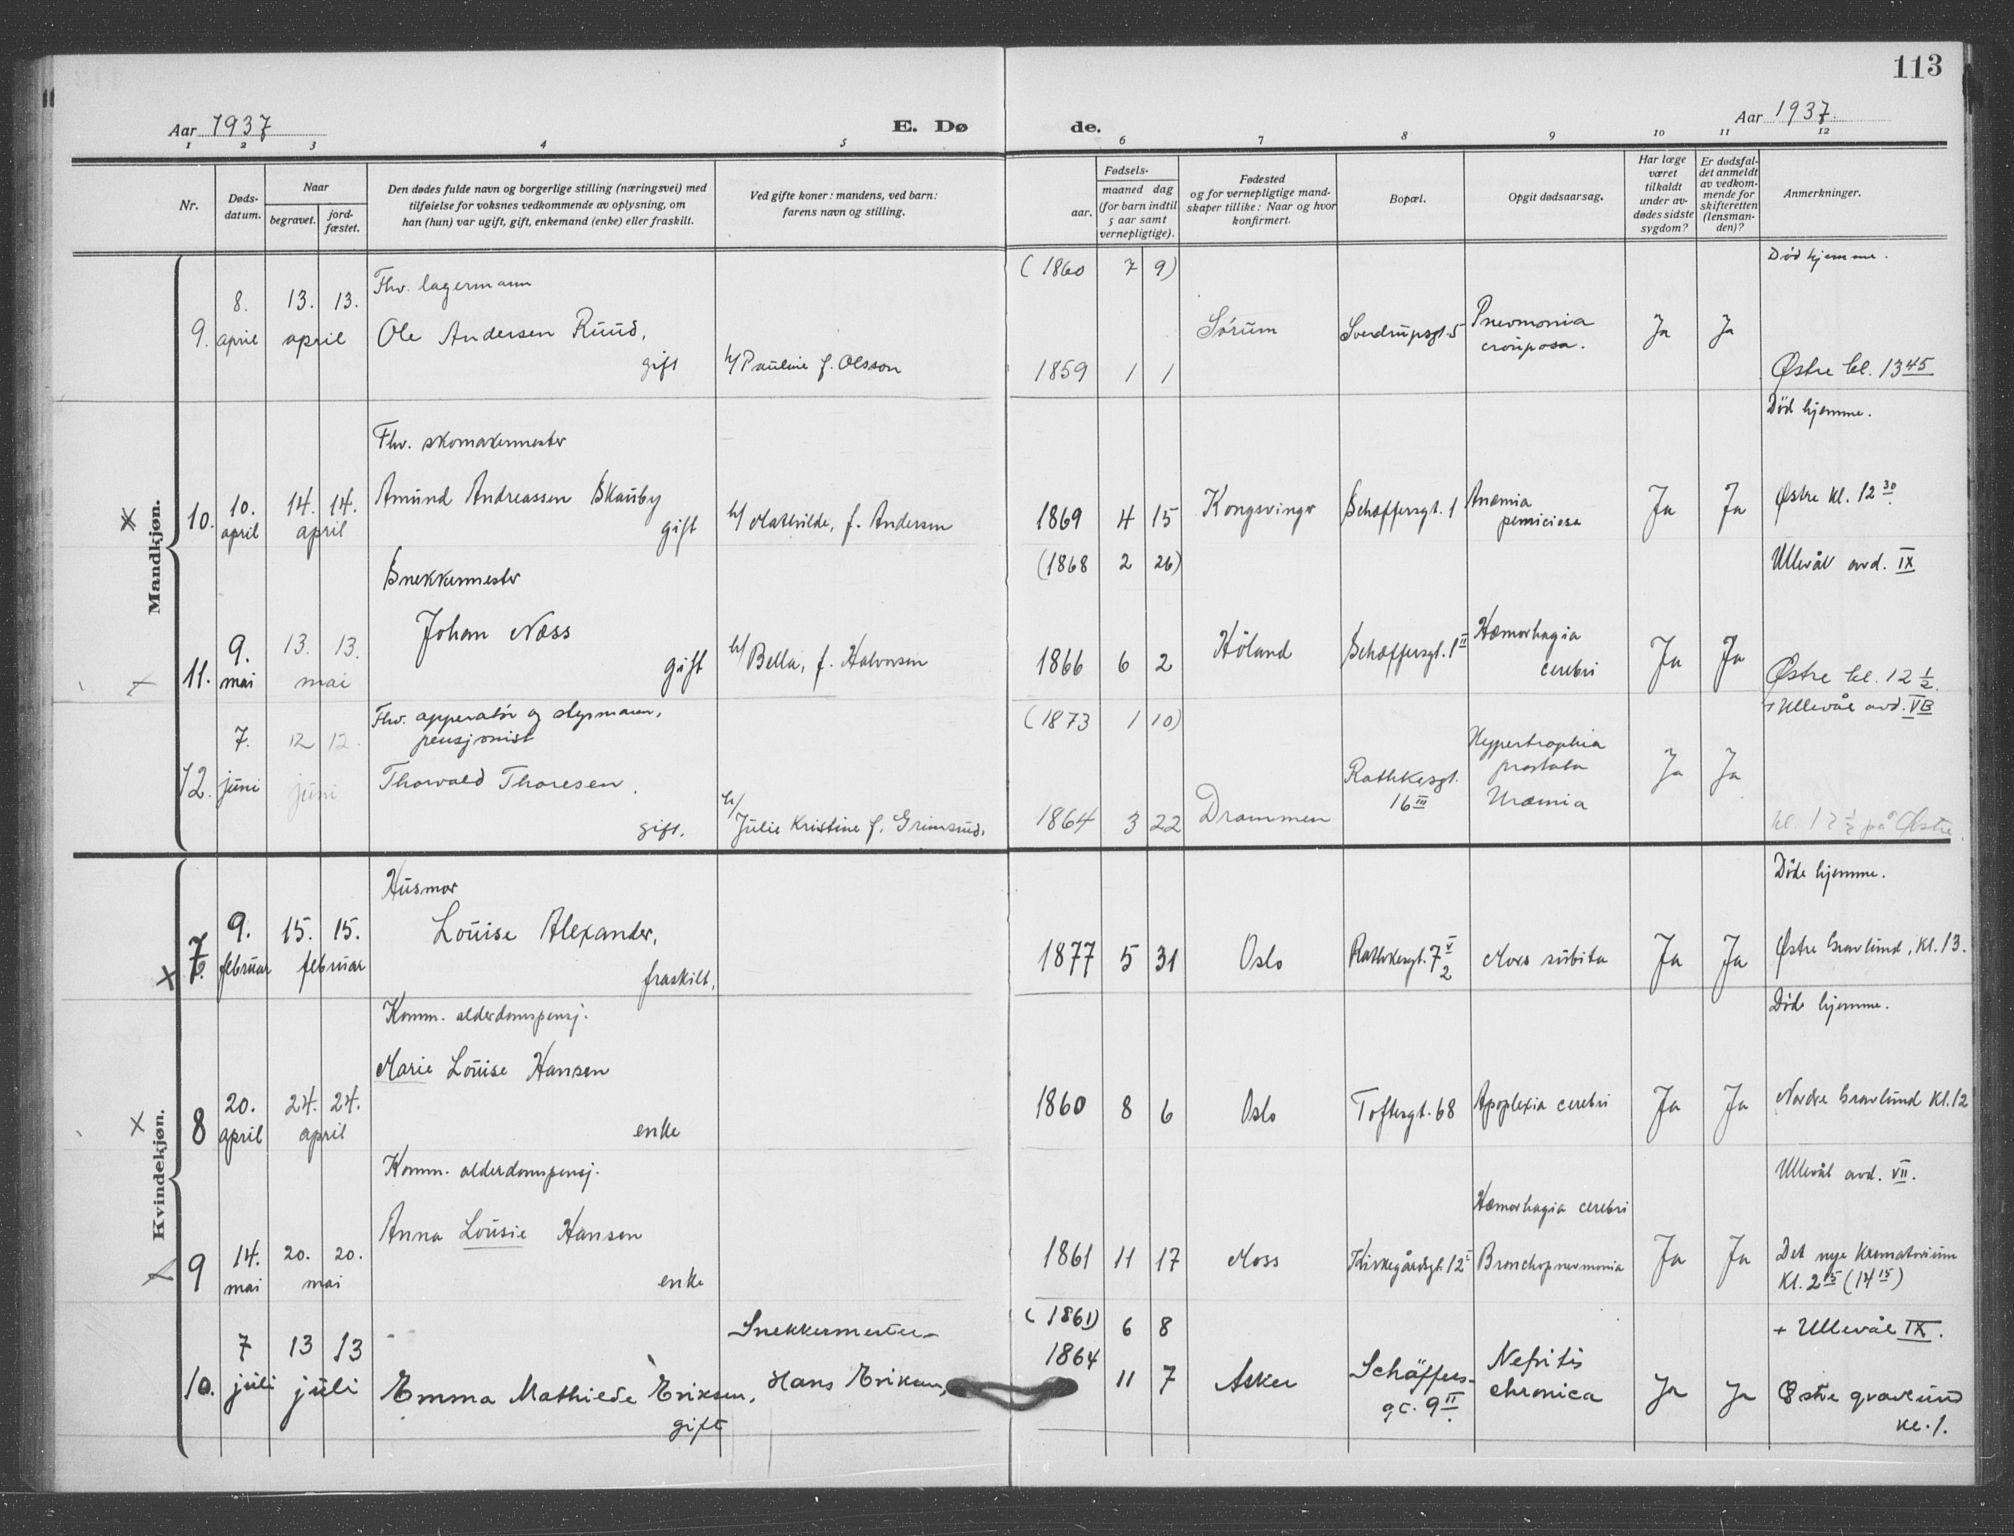 113
Aar 1937
E. Dø
de.
Aar 1937.
1 2 3 4 5 6 7 8 9 10 11 12
Nr.
Døds-
datum.
Naar
begravet.
jord-
fæstet.
Den dødes fulde navn og borgerlige stilling (næringsvei) med
tilføielse for voksnes vedkommende av oplysning, om
han (hun) var ugift, gift, enkemand (enke) eller fraskilt.
Ved gifte koner: mandens, ved barn:
farens navn og stilling.
Fødsels-
aar.
maaned dag
(for barn indtil
5 aar samt
vernepligtige).
Fødested
og for vernepligtige mand-
skaper tillike: Naar og hvor
konfirmert.
Bopæl.
Opgit dødsaarsag.
Har læge
været
tilkaldt
under av-
dødes sidste
sygdom?
Er dødsfal-
det anmeldt
av vedkom-
mende for
skifteretten
(lensman-
den)?
Anmerkninger.
Mandkjøn.
Fhv. lagermann
(1860 7 9)
Død hjemme.
8. 13. 13.
9. april april Ole Andersen Ruud, Sørum Sverdrupsgt. 5 Pnevmonia
crouposa. Ja Ja
gift h/ Pauline f. Olsson 1859 1 1 Østre kl. 13 45
Død hjemme.
Fhv. skomakermester
10. 10. 14. 14. Amund Andreassen Skauby Kongsvinger Schæffersgt. 1 Anæmia
perniciosa Ja Ja Østre kl. 12 30
april april gift h/ Mathilde, f. Andersen 1869 4 15
(1868 2 26)
Ullevål avd. IX
Snekkermester
Johan Næss
11. 9. 13. 13. Høland Schæffersgt. 1 II Hæmorhagia
cerebri Ja Ja
mai mai gift h/ Bella, f. Halvorsen 1866 6 2 Østre kl. 12 1/2.
+ Ullevål avd. VB
Fhv. apperatør og slepsmann,
pensjonist
(1873 1 10)
7. 12 12.
12. juni juni Thorvald Thoresen, Rathkesgt.
16 III Hypertrophia
prostata
Uræmia Ja Ja
gift. h/ Julie Kristine f. Grimsrud. 1864 3 22 Drammen kl. 12 1/2 på Østre.
Kvindekjøn.
Husmor
Døde hjemme.
7 9. 15. 15. Louise Alexander,
februar februar fraskilt, 1877 5 31 Oslo Rathkesgt. 7 V
2 Mors subita Ja Ja Østre Gravlund, kl. 13.
Komm. alderdomspensj.
Døde hjemme.
Marie Louise Hansen
8 20. 24. 24.
april april enke 1860 8 6 Oslo Toftesgt. 68 Apoplexia cerebri Ja Ja Nordre Gravlund kl. 12
Komm. alderdomspensj.
Ullevål avd. VII.
Anna Lousie Hansen Hæmorhagia cerebri
9 14. 20. 20.
mai mai enke 1861 11 17 Moss Kirkegårdsgt. 12 I Bronchopnevmonia Ja Ja Det nye Krematorium
kl. 2 15 (14 15)
(1861) 6 8 + Ullevål IX.
Snekkermester
7 13 13
10. juli juli Emma Mathilde Eriksen, Hans Eriksen, 1864 11 7 Asker Schäffers-
gt. 9 II Nefritis
chronica Ja Ja Østre gravlund
kl. 1.
gift